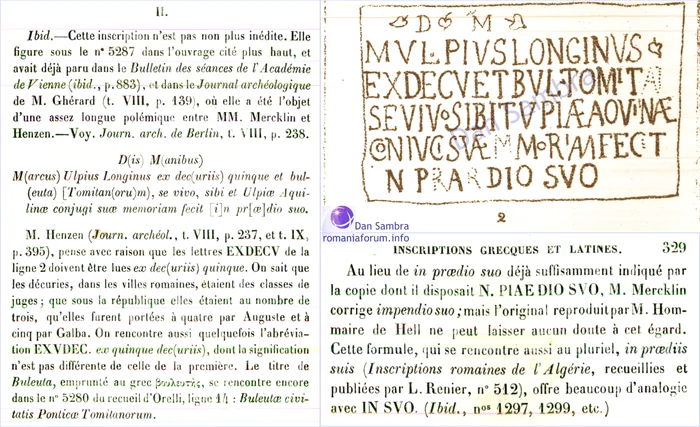 II.
Ibid.—Cette inscription n'est pas non plus inédite. Elle
figure sous le n° 5287 dans l'ouvrage cité plus haut, et
avait déjà paru dans le Bulletin des séances de l'Académie
de Vienne (ibid., p. 883), et dans le Journal archéologique
de M. Ghérard (t. VIII, p. 139), où elle a été l'objet
d'une assez longue polémique entre MM. Mercklin et
Henzen.—Voy. Journ. arch. de Berlin, t. VIII, p. 238.
D(is) M(anibus)
M(arcus) Ulpius Longinus ex dec(uriis) quinque et bul-
(euta) [Tomitan(oru)m), se vivo, sibi et Ulpiæ Aqui-
linæ conjugi suæ memoriam fecit [i]n pr[æ]dio suo.
M. Henzen (Journ. archéol., t. VIII, p. 237, et t. IX,
p. 395), pense avec raison que les lettres EXDECV de la
ligne 2 doivent être lues ex dec(uriis) quinque. On sait que
les décuries, dans les villes romaines, étaient des classes de
juges; que sous la république elles étaient au nombre de
trois, qu'elles furent portées à quatre par Auguste et à
cinq par Galba. On rencontre aussi quelquefois l'abrévia-
tion EXVDEC. ex quinque dec(uriis), dont la signification
n'est pas différente de celle de la première. Le titre de
Buleuta, emprunté au grec βουλευτής, se rencontre encore
dans le n° 5280 du recueil d'Orelli, ligne 14 : Buleutæ civi-
tatis Ponticæ Tomitanorum.
D M
MVLPIVSLONGINVS
EXDECVETBVLTOMIT
SEVIVOSIBITVPIÆAQVINÆ
CONIVGISVÆMMORIAMFECIT
N PRAR DIO SVO
2
Dan Sambra
romaniaforum.info
INSCRIPTIONS GRECQUES ET LATINES. 329
Au lieu de in prædio suo déjà suffisamment indiqué par
la copie dont il disposait N. PIAE DIO SVO, M. Mercklin
corrige impendio suo; mais l'original reproduit par M. Hom-
maire de Hell ne peut laisser aucun doute à cet égard.
Cette formule, qui se rencontre aussi au pluriel, in prædiis
suis (Inscriptions romaines de l'Algérie, recueillies et
publiées par L. Renier, n° 512), offre beaucoup d'analogie
avec IN SVO. (Ibid., nos 1297, 1299, etc.)